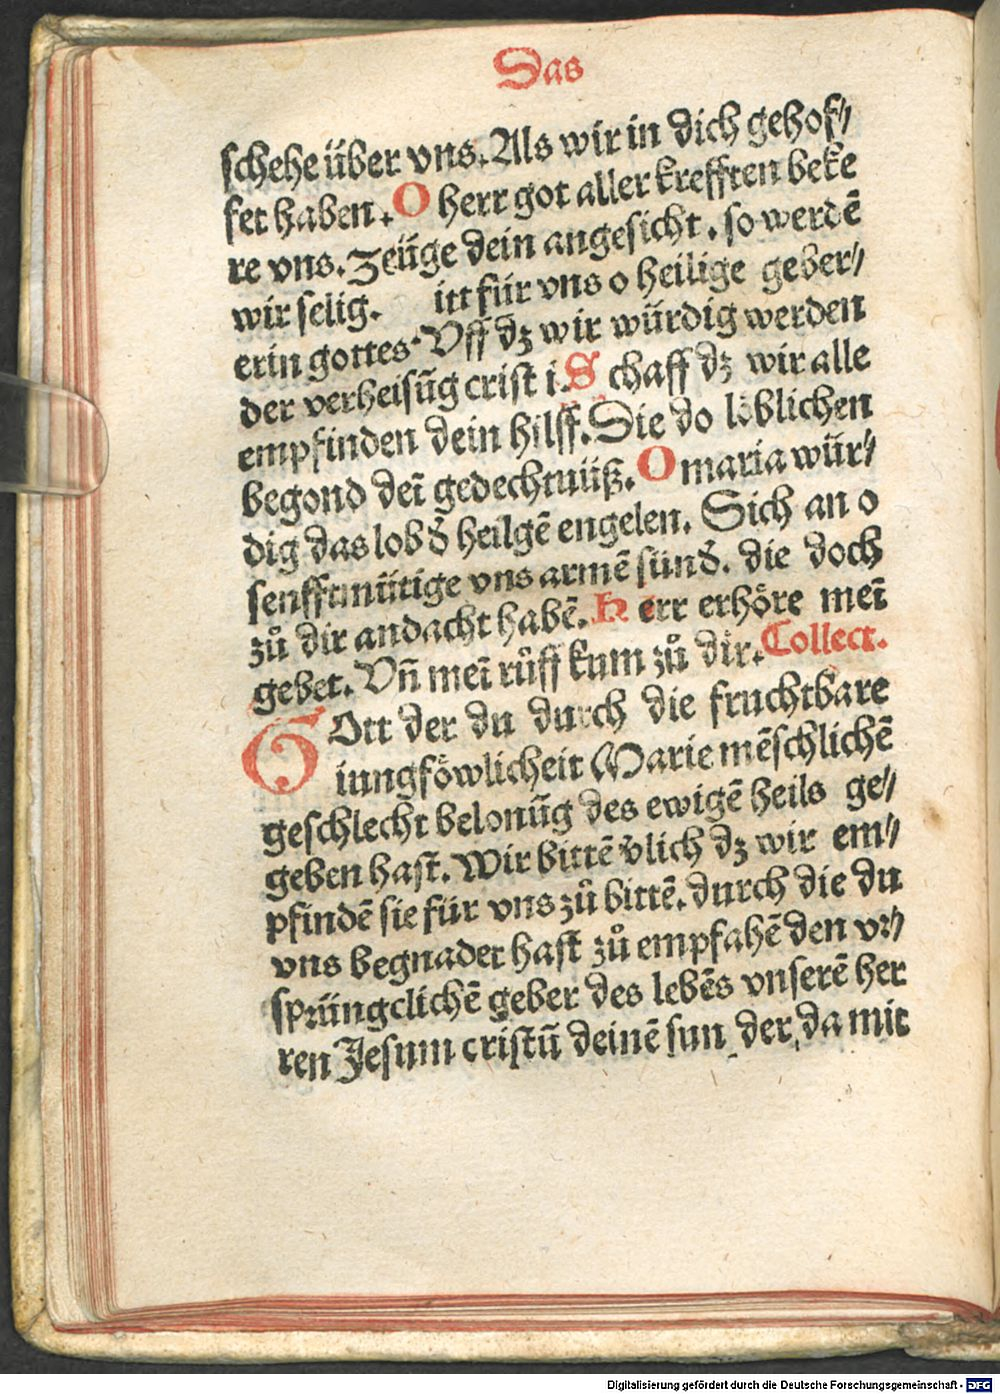 Das
schehe über vns. Als wir in dich gehof⸗
fet haben. O herr got aller krefften beke
re vns. Zeüge dein angesicht. so werdē
wir selig. itt für vns o heilige geber⸗
erin gottes. Vff dz wir würdig werden
der verheisūg crist i. Schaff dz wir alle
empfinden dein hilff. Die do löblichen
begond deī gedechtnüß. O maria wür⸗
dig das lob d̕ heilgē engelen. Sich an o
senfftmütige vns armē sünd̕. die doch
zů dir andacht habē. Herr erhöre meī
gebet. Vn̄ meī růff kum zů dir. Collect.
GOtt der du durch die fruchtbare
iungföwlicheit Marie mēschlichē
geschlecht belonūg des ewigē heils ge⸗
geben hast. Wir bittē v̕lich dz wir em⸗
pfindē sie für vns zů bittē. durch die du
vns begnadet hast zů empfahē den vr⸗
sprüngclichē geber des lebēs vnserē her
ren Jesum cristū deinē sun der da mit
Digitalisierung gefördert durch die Deutsche Forschungsgemeinschaft - DFG